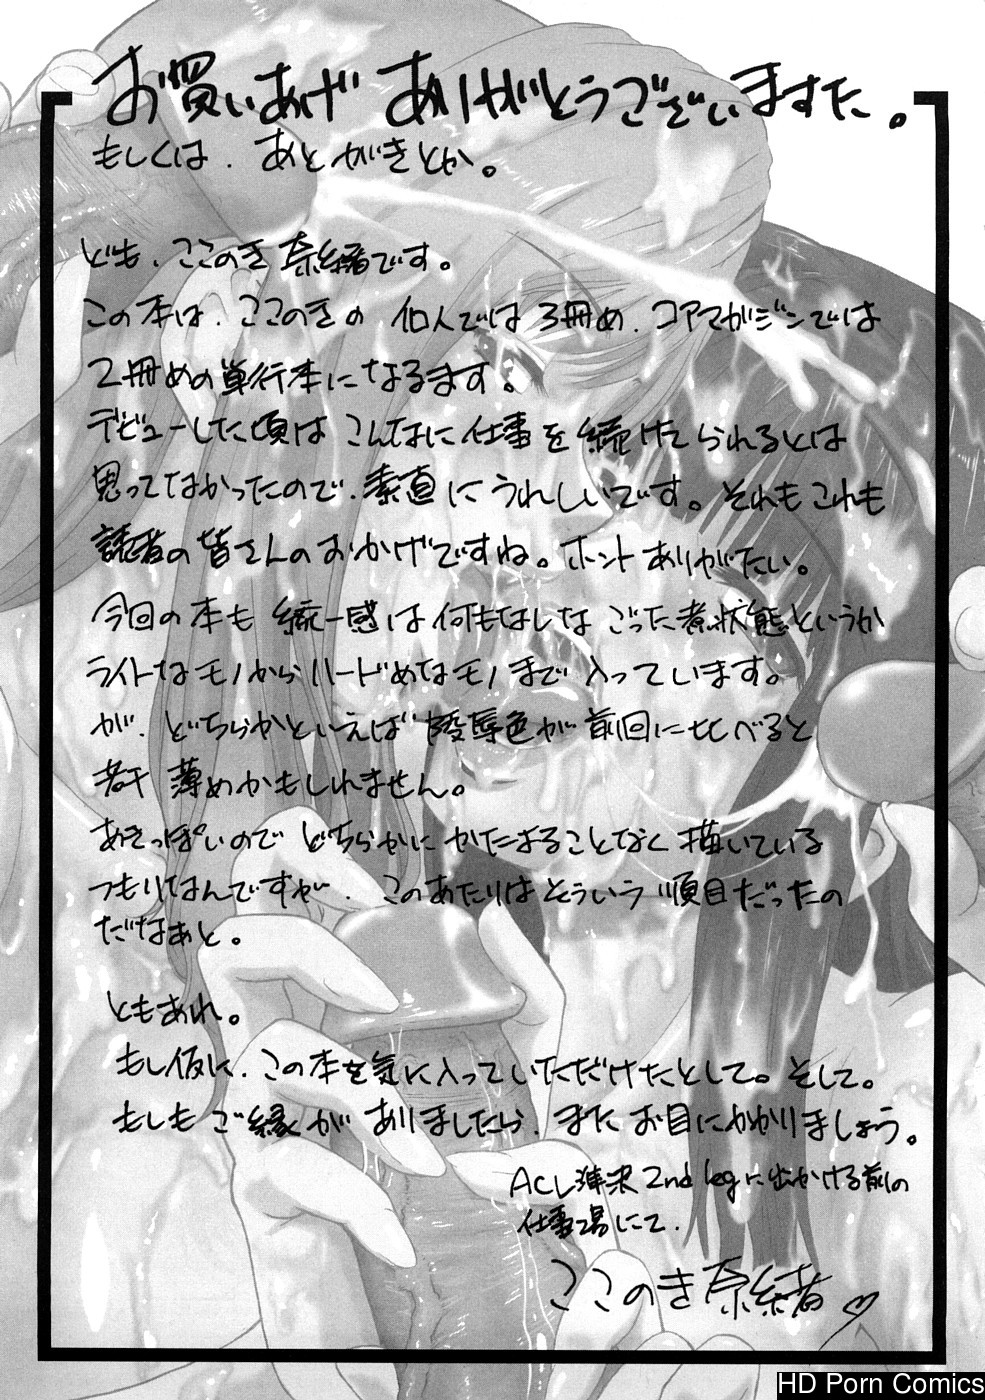 お買いあげ ありがとうございますた。
もしくは、あとがきとか。
ども、ここのき奈緒です。
この本は、ここのきの個人では3冊め、コアマガジンでは
2冊めの単行本になるます。
デビューした頃はこんなに仕事を続けてられるとは
思ってなかったので、素直にうれしいです。それもこれも
読者の皆さんのおかげですね。ホントありがたい。
今回の本も統一感は何もはしな ごった煮状態というか
ライトなモノからハードめなモノまで入っています。
が、どちらかといえば陵辱色が前回に比べると
若干薄めかもしれません。
あきっぽいのでどちらかにかたまることなく描いている
つもりなんですが、このあたりはそういう順目だったの
だなぁと。
ともあれ。
もし仮に、この本を気に入っていただけたとして。そして。
もしもご縁がありましたら、またお目にかかりましょう。
ACL 2nd legに出かける前の
仕事場にて、
ここのき奈緒
HD Porn Comics